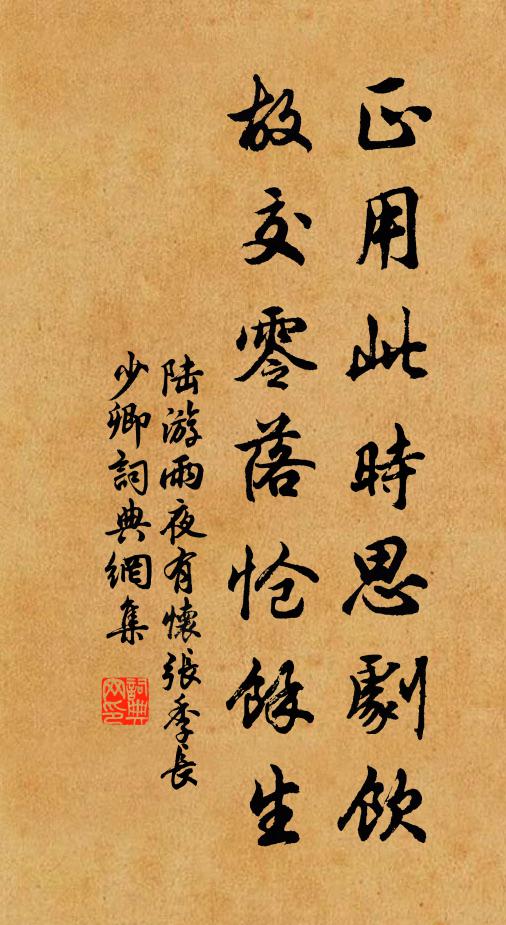 正用此時思劇飲
故交零落愴餘生
陆游雨夜有懷張季長
少卿詞典網集
詞典網印